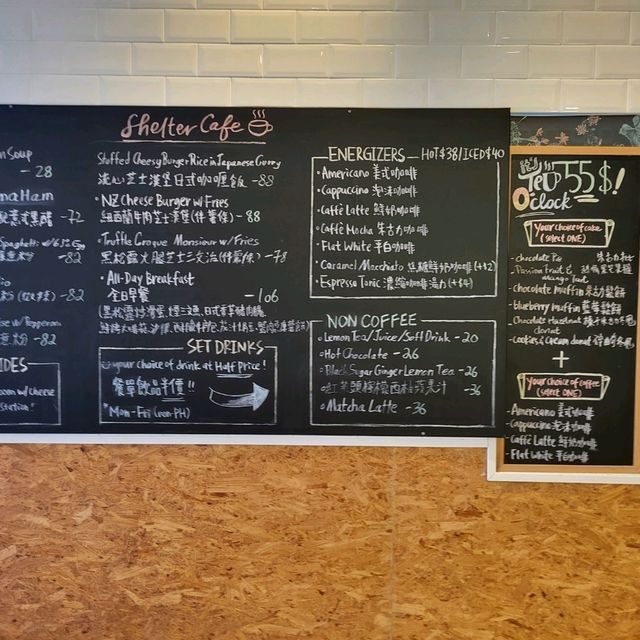 Shelter Cafe
Soup
- 28
Ham
- 72
Spaghetti w/
- 82
- 82
w/ Pepperoni
- 82
w/ Cheese
Station!
Stuffed Cheesy Burger Rice in Japanese Curry
流心芝士漢堡日式咖喱飯 - 88
• NZ Cheese Burger w/ Fries
紐西蘭牛肉芝士漢堡(伴薯條) - 88
• Truffle Croque Monsieur w/ Fries
黑松露火腿芝士交治(伴薯條) - 78
• All-Day Breakfast
全日早餐 - 106
SET DRINKS
your choice of drink at Half Price!
餐單飲品半價!!
*Mon-Fri (non-PH)
ENERGIZERS - HOT$38/ICED$40
• Americano 美式咖啡
• Cappuccino 泡沫咖啡
• Caffè Latte 鮮奶咖啡
• Caffè Mocha 朱古力咖啡
• Flat White 平白咖啡
• Caramel Macchiato 焦糖鮮奶咖啡 (+$2)
• Espresso Tonic 濃縮咖啡湯力 (+$4)
NON COFFEE
Lemon Tea/Juice/Soft Drink - 20
Hot Chocolate - 26
Black Sugar Ginger Lemon Tea - 26
- 36
Matcha Latte - 36
It's
Tea
O'clock
55$!
Your choice of cake
(select ONE)
- chocolate Pie
- Passion fruit &
mango tart
- chocolate muffin 朱古力鬆餅
- blueberry muffin 藍莓鬆餅
- Chocolate Hazelnut
donut
- cookies & cream donut
+
Your choice of coffee
(select ONE)
- Americano 美式咖啡
- Cappuccino 泡沫咖啡
- Caffè Latte 鮮奶咖啡
- Flat White 平白咖啡